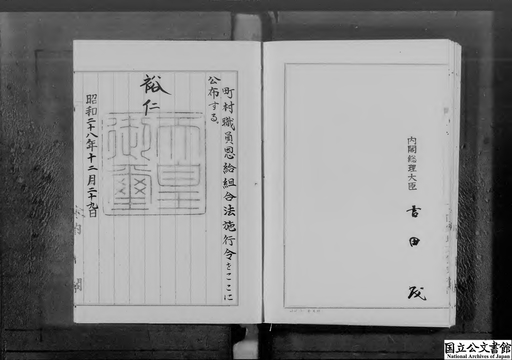 町村職員恩給組合法施行令をここに
公布する。
裕仁
天皇御璽
昭和二十八年十二月二十九日
内閣総理大臣 吉田茂
国立公文書館
National Archives of Japan